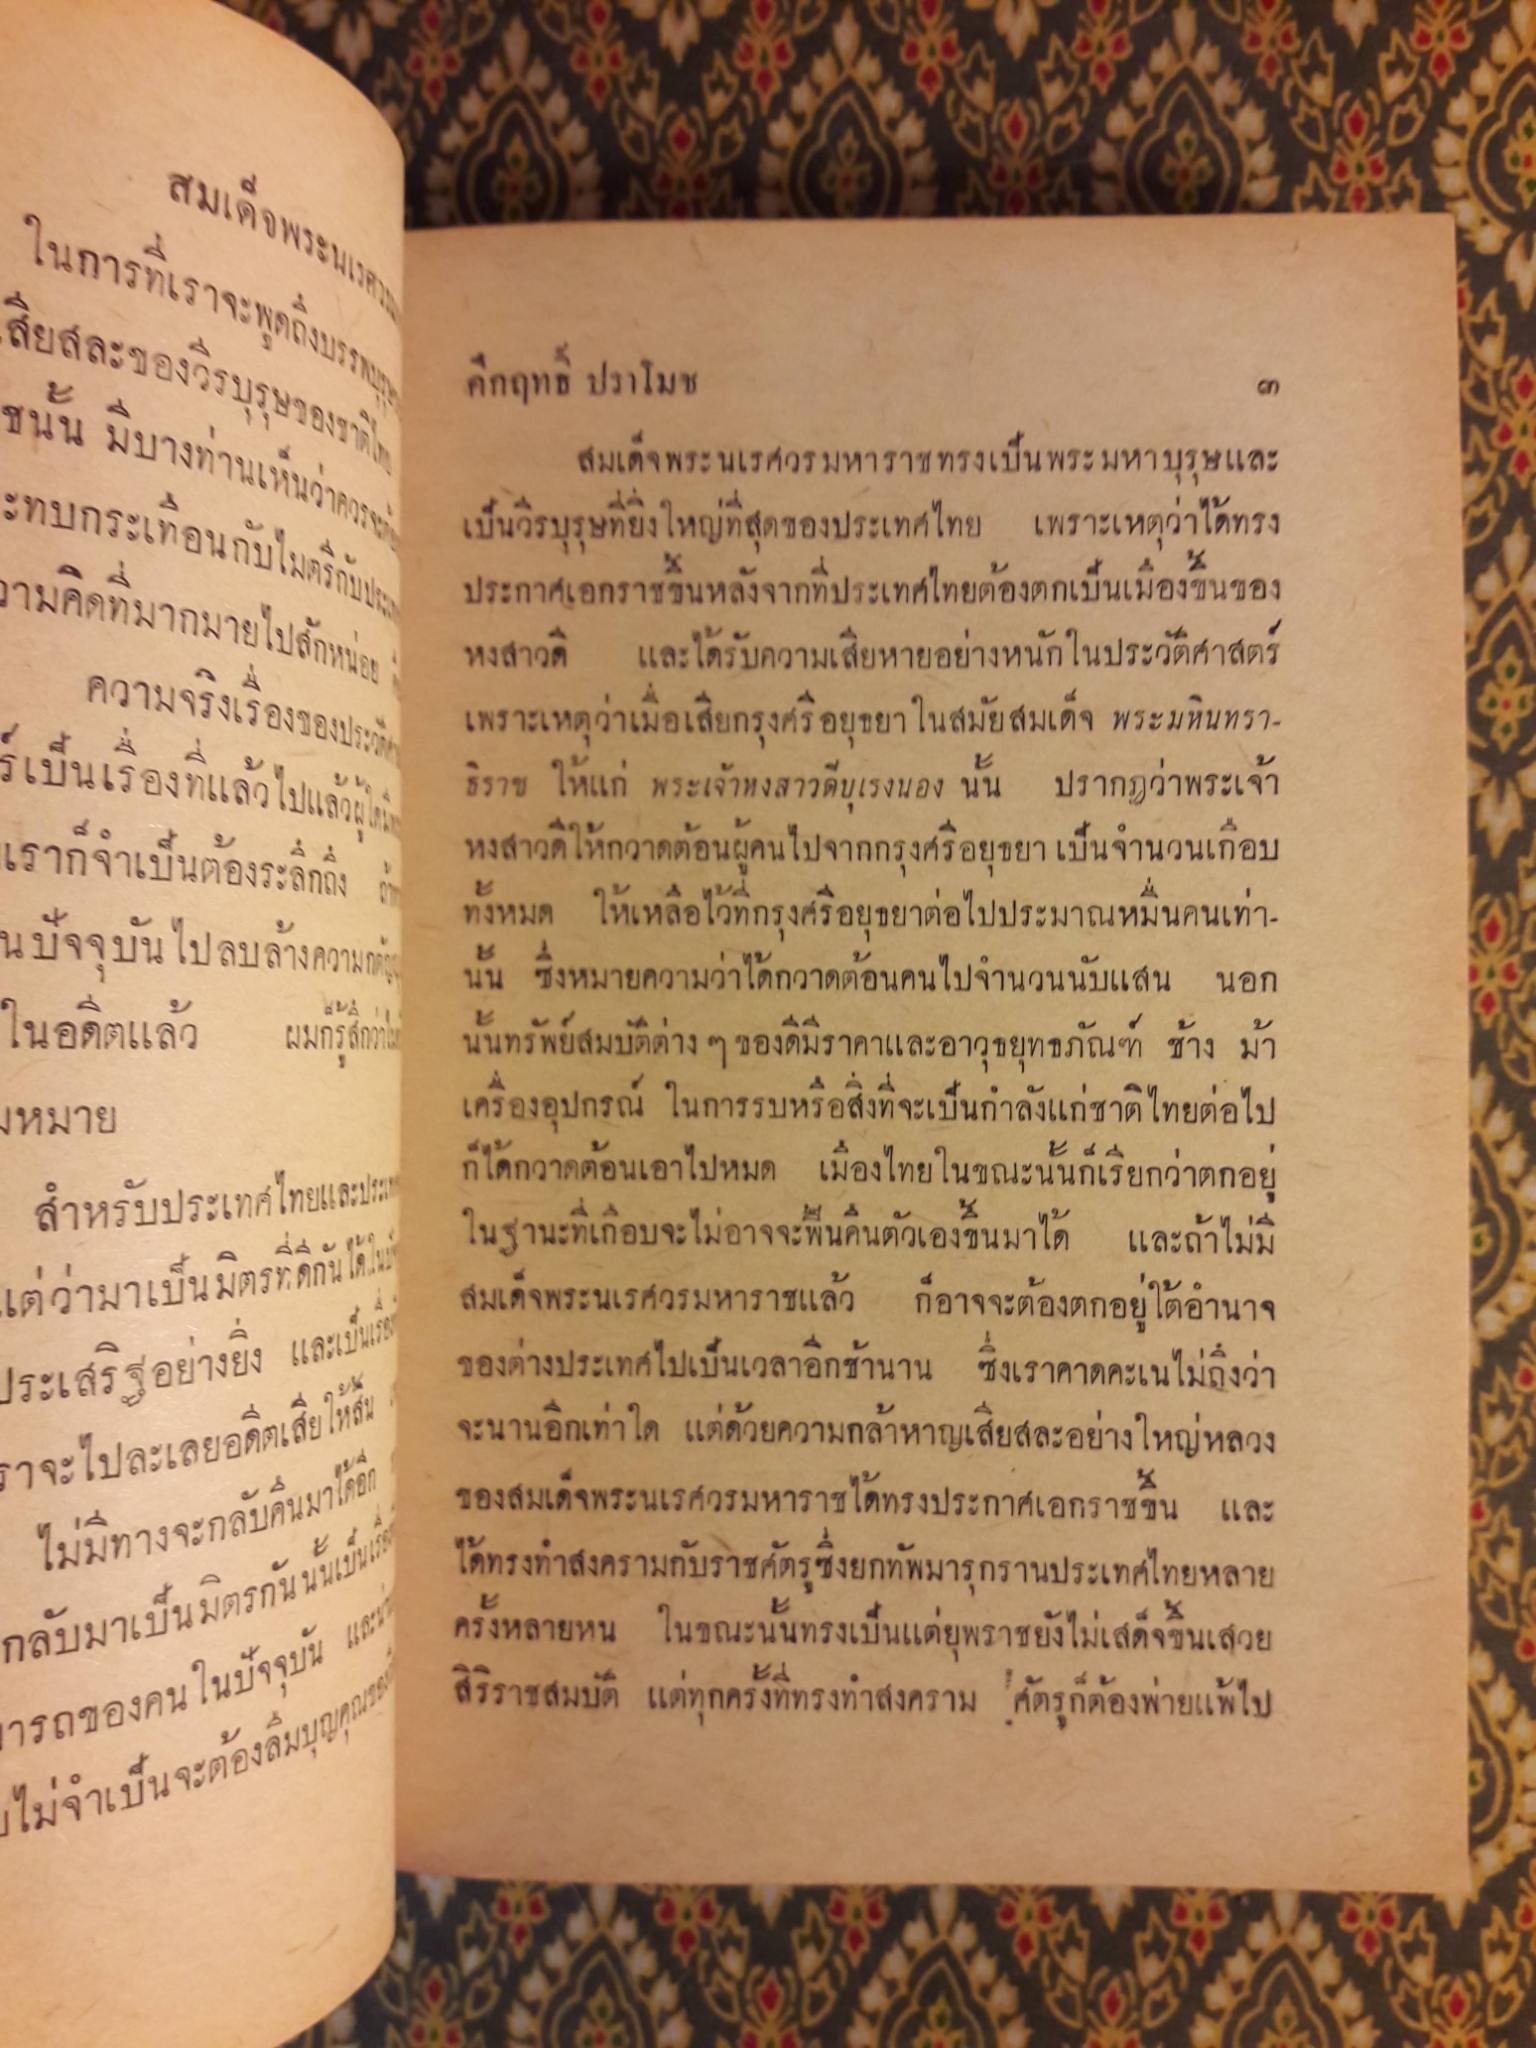 สมเด็จพระนเรศวรม
ในการที่เราจะพูดถึงบรรพบุรุษ
เสียสละของวีรบุรุษของชาติไทย
ชนั้น มีบางท่านเห็นว่าควรจะ
ะทบกระเทือนกับไมตรีกับประเท
วามคิดที่มากมายไปสักหน่อย
ความจริงเรื่องของประวัติศา
ร์เป็นเรื่องที่แล้วไปแล้วผู้ใด
เราก็จำเป็นต้องระลึกถึง
นปัจจุบันไปลบล้างความกตัญญ
ในอดีตแล้ว ผมก็รู้สึกว่า
มหมาย
สำหรับประเทศไทยและประเท
แต่ว่ามาเป็นมิตรที่ดีกันได้ใน
ประเสริฐอย่างยิ่ง และเป็นเรื่อง
ราจะไปละเลยอดีตเสียให้สิ้น
ไม่มีทางจะกลับคืนมาได้อีก
กลับมาเป็นมิตรกันนั้นเป็นเรื่อง
มารถของคนในปัจจุบัน และน่า
ไม่จำเป็นจะต้องลืมบุญคุณของ
คึกฤทธิ์ ปราโมช ๓
สมเด็จพระนเรศวรมหาราชทรงเป็นพระมหาบุรุษและ
เป็นวีรบุรุษที่ยิ่งใหญ่ที่สุดของประเทศไทย เพราะเหตุว่าได้ทรง
ประกาศเอกราชขึ้นหลังจากที่ประเทศไทยต้องตกเป็นเมืองขึ้นของ
หงสาวดี และได้รับความเสียหายอย่างหนักในประวัติศาสตร์
เพราะเหตุว่าเมื่อเสียกรุงศรีอยุธยาในสมัยสมเด็จ พระมหินทรา-
ธิราช ให้แก่ พระเจ้าหงสาวดีบุเรงนอง นั้น ปรากฏว่าพระเจ้า
หงสาวดีให้กวาดต้อนผู้คนไปจากกรุงศรีอยุธยา เป็นจำนวนเกือบ
ทั้งหมด ให้เหลือไว้ที่กรุงศรีอยุธยาต่อไปประมาณหมื่นคนเท่า-
นั้น ซึ่งหมายความว่าได้กวาดต้อนคนไปจำนวนนับแสน นอก
นั้นทรัพย์สมบัติต่าง ๆ ของดีมีราคาและอาวุธยุทธภัณฑ์ ช้าง ม้า
เครื่องอุปกรณ์ ในการรบหรือสิ่งที่จะเป็นกำลังแก่ชาติไทยต่อไป
ก็ได้กวาดต้อนเอาไปหมด เมืองไทยในขณะนั้นก็เรียกว่าตกอยู่
ในฐานะที่เกือบจะไม่อาจจะฟื้นคืนตัวเองขึ้นมาได้ และถ้าไม่มี
สมเด็จพระนเรศวรมหาราชแล้ว ก็อาจจะต้องตกอยู่ใต้อำนาจ
ของต่างประเทศไปเป็นเวลาอีกช้านาน ซึ่งเราคาดคะเนไม่ถึงว่า
จะนานอีกเท่าใด แต่ด้วยความกล้าหาญเสียสละอย่างใหญ่หลวง
ของสมเด็จพระนเรศวรมหาราชได้ทรงประกาศเอกราชขึ้น และ
ได้ทรงทำสงครามกับราชศัตรูซึ่งยกทัพมารุกรานประเทศไทยหลาย
ครั้งหลายหน ในขณะนั้นทรงเป็นแต่ยุพราชยังไม่เสด็จขึ้นเสวย
สิริราชสมบัติ แต่ทุกครั้งที่ทรงทำสงคราม ศัตรูก็ต้องพ่ายแพ้ไป